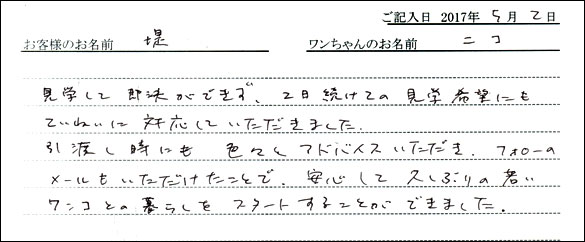 ご記入日 2017年 5月 2日
お客様のお名前 堤 ワンちゃんのお名前 ニコ
見学して即決ができず、2日続けての見学希望にも
ていねいに対応していただきました.
引渡し時にも色々とアドバイスいただき.フォローの
メールもいただけたことで.安心して久しぶりの若い
ワンコとの暮らしをスタートすることができました.